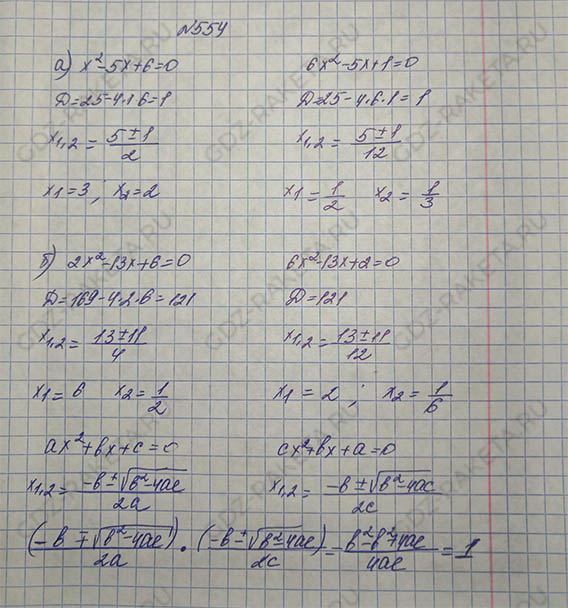 №554
а) x²-5x+6=0
Д=25-4·1·6=1
x1,2 = (5±1)/2
x1=3; x2=2
6x²-5x+1=0
Д=25-4·6·1=1
x1,2 = (5±1)/12
x1=1/2 x2=1/3
б) 2x²-13x+6=0
Д=169-4·2·6=121
x1,2 = (13±11)/4
x1=6 x2=1/2
6x²-13x+2=0
Д=121
x1,2 = (13±11)/12
x1=2; x2=1/6
ax²+bx+c=0
x1,2 = (-b±√(b²-4ac))/(2a)
cx²+bx+a=0
x1,2 = (-b±√(b²-4ac))/(2c)
((-b∓√(b²-4ac))/(2a))·((-b±√(b²-4ac))/(2c)) = (b²-b²+4ac)/(4ac) = 1
GDZ-RAKETA.RU